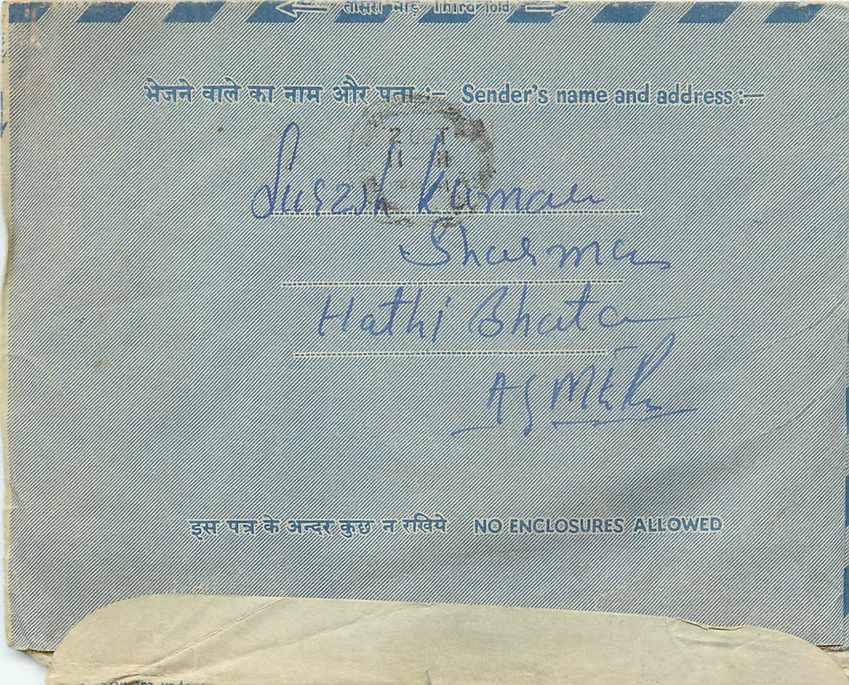 तीसरा मोड़ Third fold
भेजने वाले का नाम और पता :— Sender's name and address :—
Suresh Kumar
Sharma
Hathi Bhata
AJMER
इस पत्र के अन्दर कुछ न रखिये NO ENCLOSURES ALLOWED